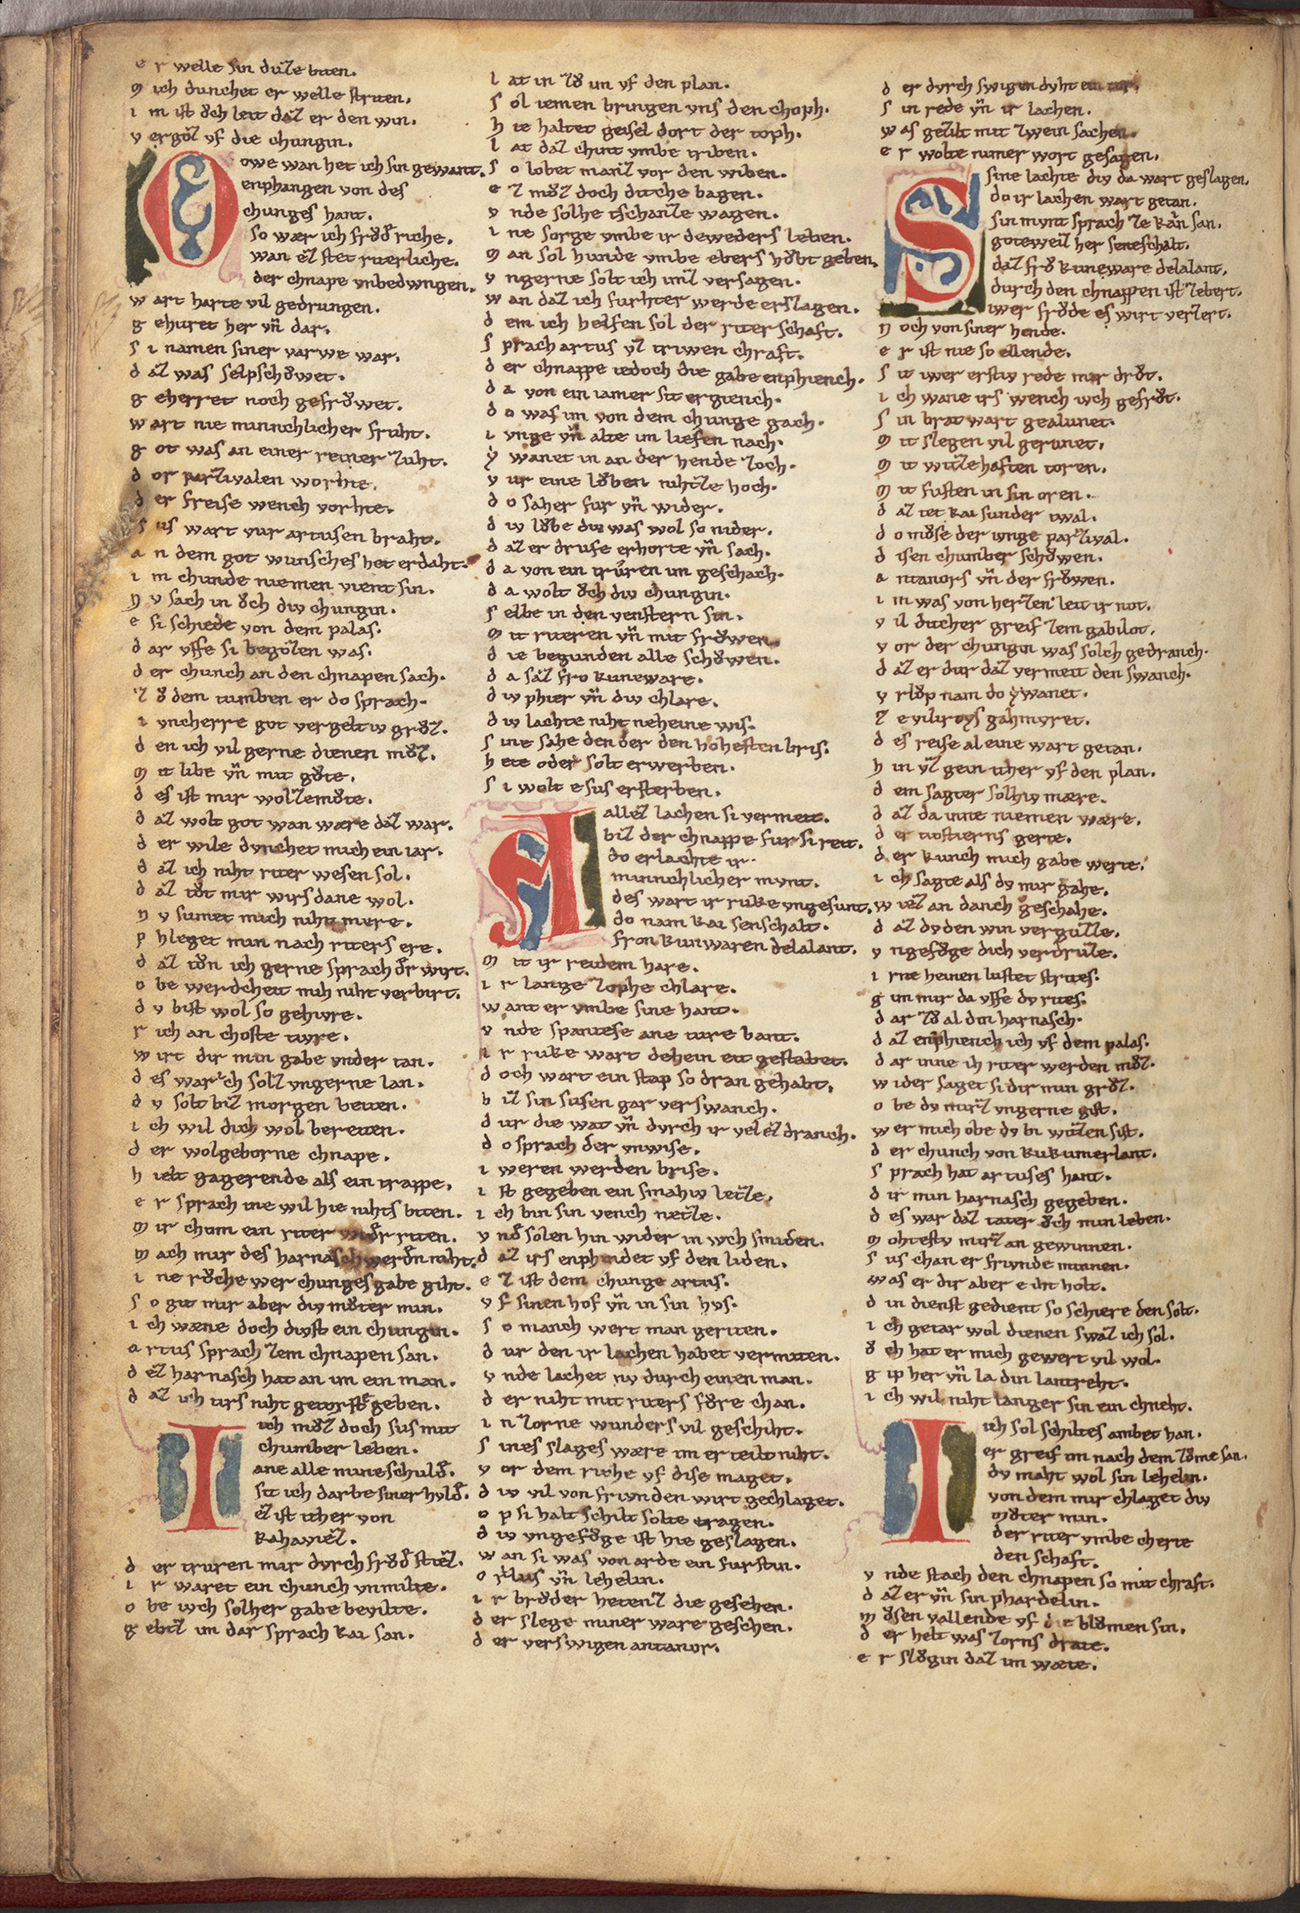 e r welle sin dúzle biten.
m ich dunchet er welle striten.
i m ist och leit daz er den win.
v ergoz vf die chungin.
O owe wan het ich sin gewant.
enphangen von des
chunges hant.
so wær ich froͮdͤ riche.
wan ez stet riterliche.
der chnape vnbedwngen.
w art harte vil gedrungen.
g ehuret her vn̄ dar.
s i namen siner varwe war.
d az was selpschoͮwet.
g eherret noch gefroͮwet.
w art nie minnchlicher fruht.
g ot was an einer reiner zuht.
d or parzivalen worhte.
d er freise wench vorhte.
s us wart vur artusen braht.
a n dem got wunsches het erdaht.
i m chunde niemen vient sin.
n v sach in oͮch diw chungin.
e si schiede von dem palas.
d ar vffe si begozen was.
d er chunch an den chnapen sach.
z oͮ dem tumben er do sprach.
i vncherre got vergelt iv groͮz.
d en ich vil gerne dienen moͮz.
m it libe vn̄ mit goͮte.
d es ist mir wol zemoͮte.
d az wolt got wan wære daz war.
d er wile dvnchet mich ein iar.
d az ich niht riter wesen sol.
d az toͮt mir wirs dane wol.
n v sumet mich niht mere.
p hleget min nach riters ere.
d az toͮn ich gerne sprach dͤr wirt.
o be werdcheit mih niht verbirt.
d v bist wol so gehivre.
r ich an choste tivre.
w irt dir min gabe vnder tan.
d es war ich solz vngerne lan.
d v solt biz morgen beiten.
i ch wil dich wol bereiten.
d er wolgeborne chnape.
h ielt gagerende als ein trappe.
e r sprach ine wil hie nihts biten.
m ir chom ein riter widͤr riten.
m ach mir des harnasch werdͤn niht.
i ne roͮche wer chunges gabe giht.
s o git mir aber div moͮter min.
i ch wæne doch divst ein chungin.
a rtus sprach zem chnapen san.
d ez harnasch hat an im ein man.
d az ich dirs niht getorste geben.
I ich moͮz doch sus mit
chumber leben.
ane alle mine schuldͤ.
sit ich darbe siner huldͤ.
ez ist ither von
kahaviez.
d er truren mir dvrch froͮdͤ stiez.
i r waret ein chunch vnmilte.
o be iwch solher gabe bevilte.
g ebtz im dar sprach kai san.
l at in zoͮ im vf den plan.
s ol iemen bringen vns den choph.
h ie haltet geisel dort der toph.
l at daz chint vmbe triben.
s o lobet manz vor den wiben.
e z moͮz doch diche bagen.
v nde solhe tschanze wagen.
i ne sorge vmbe ir deweders leben.
m an sol hunde vmbe ebers hoͮbt geben.
v ngerne solt ich imz versagen.
w an daz ich furhte er werde erslagen.
d em ich helfen sol der riterschaft.
s prach artus vz triwen chraft.
d er chnappe iedoch die gabe enphiench.
d a von ein iamer sit ergiench.
d o was im von dem chunge gach.
i vnge vn̄ alte im liefen nach.
y wanet in an der hende zoch.
v ur eine loͮben nihtze hoch.
d o saher fur vn̄ wider.
d iv loͮbe div was wol so nider.
d az er druffe erhorte vn̄ sach.
d a von ein truren im geschach.
d a wolt oͮch div chungin.
s elbe in den venstern sin.
m it riteren vn̄ mit froͮwen.
d ie begunden alle schoͮwen.
d a saz fro kuneware.
d iv phier vn̄ div chlare.
d iv lachte niht neheine wis.
s ine sahe den der den hohesten bris.
h ete oder solt erwerben.
s i wolt e sus ersterben.
A allez lachen si vermeit.
biz der chnappe fur si reit.
do erlachte ir
minnchlicher mvnt.
des wart ir ruke vngesunt.
do nam kai senschalt.
fron kunwaren delalant.
m it ir reidem hare.
i r lange zophe chlare.
w ant er vmbe sine hant.
v nde spantese ane ture bant.
i r ruke wart dehein eit gestabet.
d och wart ein stap so dran gehabt.
b iz sin susen gar verswanch.
d ur die wat vn̄ dvrch ir vel ez dranch.
d o sprach der vnwise.
i weren werden brise.
i st gegeben ein smahiv letze.
i ch bin sin vench netze.
v nd solen hin wider in wch smiden.
d az irs enphindet vf den liden.
e z ist dem chunge artus.
v f sinen hof vn̄ in sin hvs.
s o manch wert man geriten.
d ur den ir lachen habet vermiten.
v nde lachet nv durch einen man.
d er niht mit riters foͮre chan.
i n zorne wunders vil geschiht.
s ines slages wære im erteilt niht.
v or dem riche vf dise maget.
d iv vil von friwnden wirt gechlaget.
o p si halt schilt solte tragen.
d iv vngefoͮge ist hie geslagen.
w an si was von arde ein furstin.
o rilus vn̄ lehelin.
i r broͮder hetenz die gesehen.
d er slege miner ware geschen.
d er verswigen antanor.
d er dvrch swigen dvht ein tor.
s in rede vn̄ ir lachen.
w as gezilt mit zwein sachen.
e r wolte nimer wort gesagen.
S sine lachte div da wart geslagen.
do ir lachen wart getan.
sin mvnt sprach ze kain san.
goteweiz her seneschalt.
daz froͮ kuneware delalant.
durch den chnappen ist zebert.
iwer froͮde es wirt verzert.
n och von siner hende.
e r ist nie so ellende.
s it iwer erstiv rede mir droͮt.
i ch wane irs wench iwch gefroͮt.
s in brat wart gealunet.
m it slegen vil gerunet.
m it witzehaften toren.
m it fusten in sin oren.
d az tet kai sunder twal.
d o moͮse der ivnge parzival.
d isen chumber schoͮwen.
a ntanors vn̄ der froͮwen.
i m was von herzen leit ir not.
v il dicher greif zem gabilot.
v or der chungin was solch gedranch.
d az er dur daz vermeit den swanch.
v rloͮp nam do ywanet.
z e vilivroys gahmvret.
d es reise al eine wart getan.
h in vz gein ither vf den plan.
d em sagter solhiv mære.
d az da inne niemen wære.
d er tiostierns gerte.
d er kunch mich gabe werte.
i ch sagte als dv mir gahe.
w iez an danch geschahe.
d az dv den win verguzze.
v ngefoͮge dich verdruze.
i rne heinen lustet strites.
g im mir da vffe dv rites.
d ar zoͮ al din harnasch.
d az enphiench ich vf dem palas.
d ar inne ih riter werden moͮz.
w ider saget si dir min groͮz.
o be dv mirz vngerne gist.
w er mich obe dv bi witzen sist.
d er chunch von kukumerlant.
s prach hat artuses hant.
d ir min harnasch gegeben.
d es war daz tater oͮch min leben.
m ohtestv mirz an gewinnen.
s us chan er friwnde minnen.
w as er dir aber e iht holt.
d in dienst gedient so schiere den solt.
i ch getar wol dienen swaz ich sol.
oͮ ch hat er mich gewert vil wol.
g ip her vn̄ la din lantreht.
i ch wil niht langer sin ein chneht.
I ich sol schiltes ambet han.
er greif im nach dem zoͮme san.
dv maht wol sin lehelin.
von dem mir chlaget div
moͮter min.
der riter vmbe cherte
den schaft.
v nde stach den chnapen so mit chraft.
d az er vn̄ sin phardelin.
m oͮsen vallende vf die bloͮmen sin.
d er helt was zorns drate.
e r sloͮgin daz im wæte.